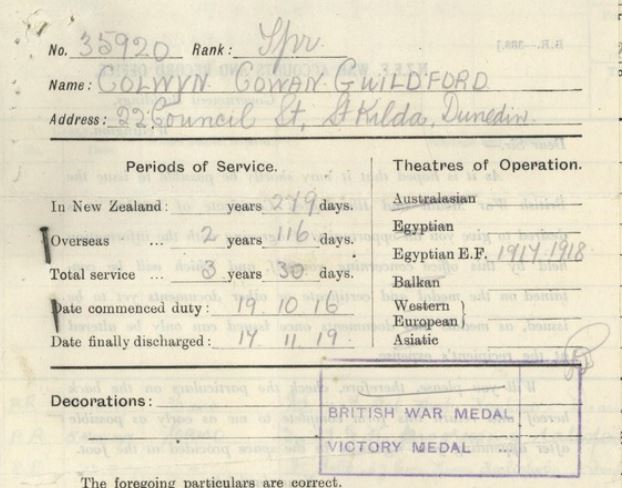 No. 35920 Rank: Spr.
Name: COLWYN COWAN GUILDFORD
Address: 22 Council St, St Kilda, Dunedin.
Periods of Service.
In New Zealand: years 279 days.
Overseas ... 2 years 116 days.
Total service ... 3 years 30 days.
Date commenced duty: 19.10.16
Date finally discharged: 17 11 19
Theatres of Operation.
Australasian
Egyptian
Egyptian E.F. 1917.1918
Balkan
Western
European
Asiatic
Decorations:
BRITISH WAR MEDAL
VICTORY MEDAL
The foregoing particulars are correct.